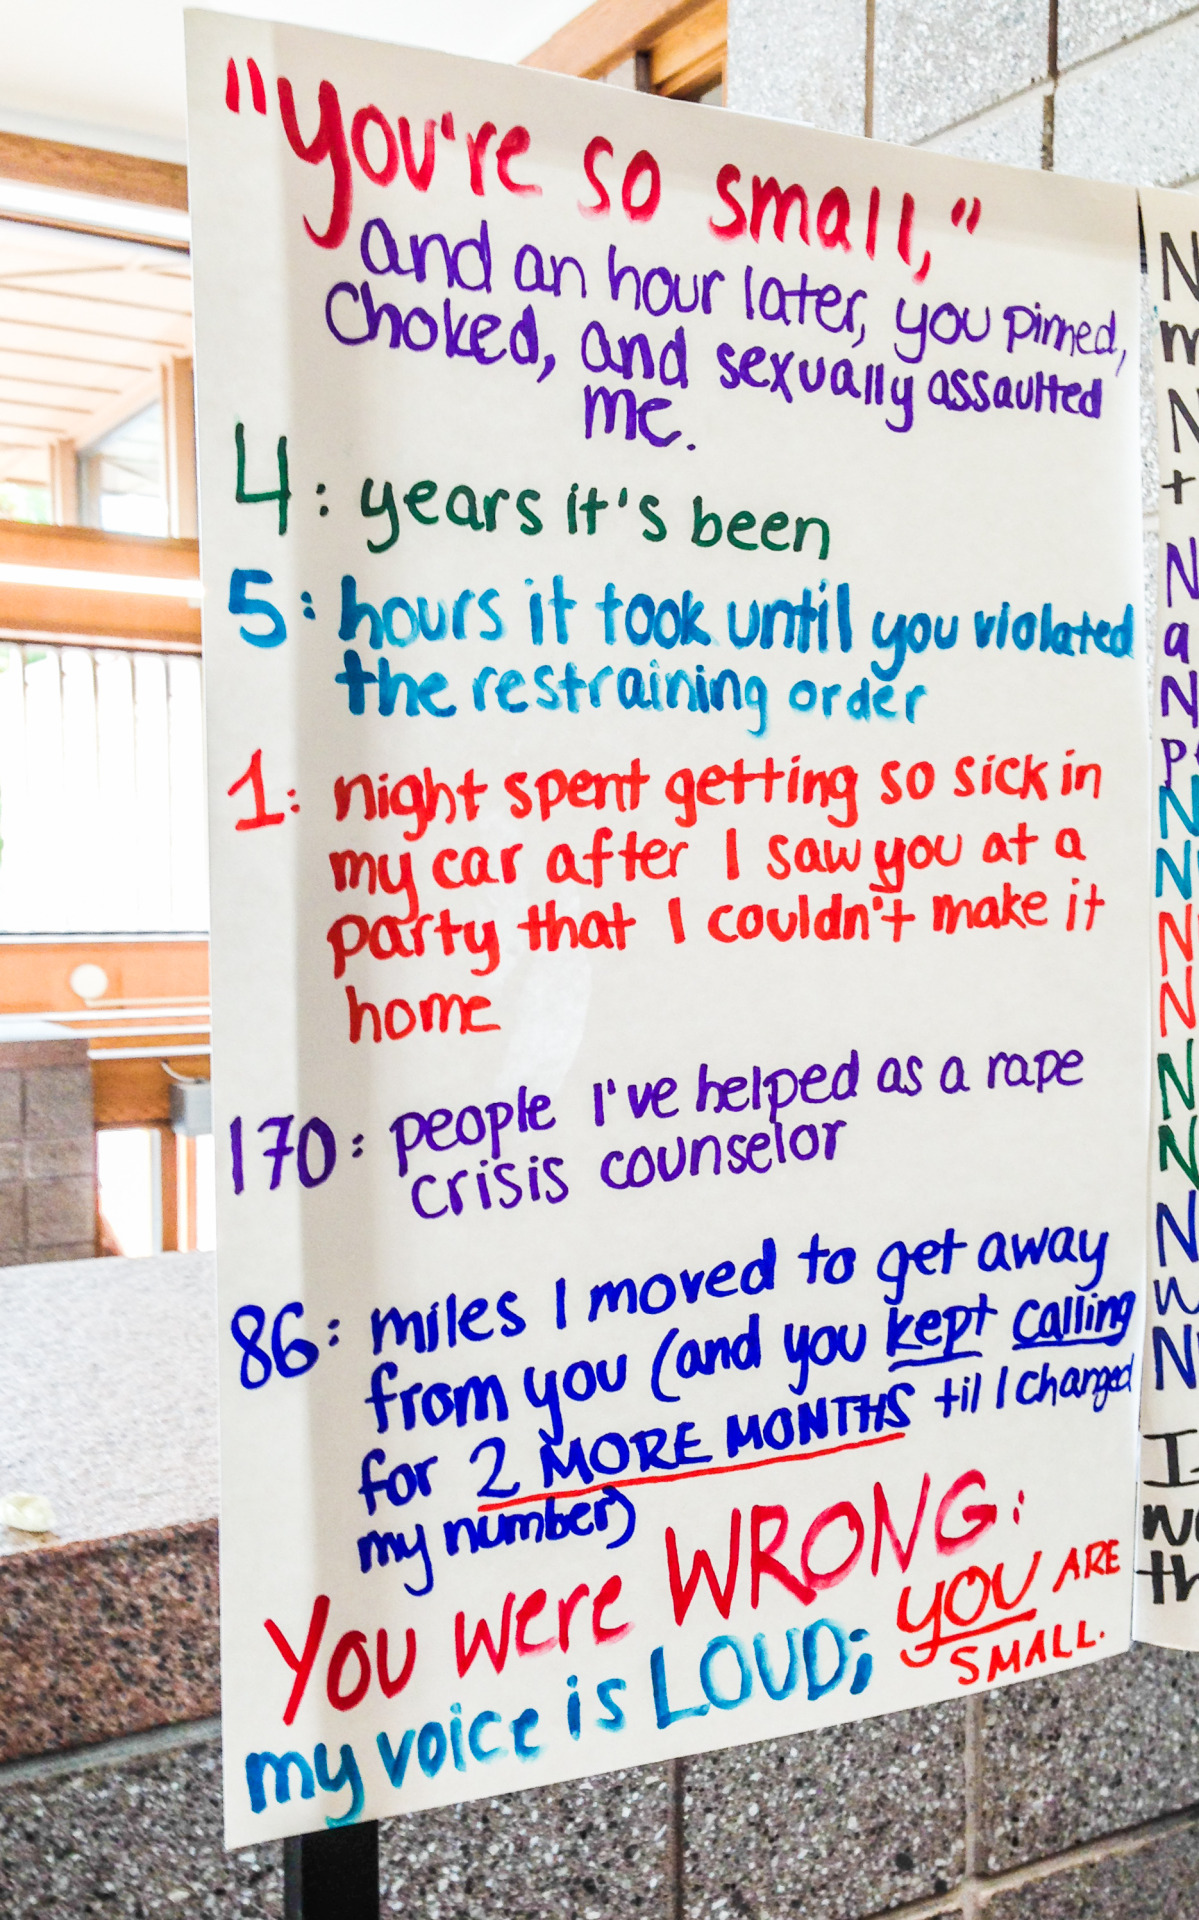 "you're so small,"
and an hour later, you pinned,
choked, and sexually assaulted
me.
4: years it's been
5: hours it took until you violated
the restraining order
1: night spent getting so sick in
my car after I saw you at a
party that I couldn't make it
home
170: people I've helped as a rape
crisis counselor
86: miles I moved to get away
from you (and you kept calling
for 2 MORE MONTHS til I changed
my number)
You were WRONG:
my voice is LOUD; YOU ARE
SMALL.